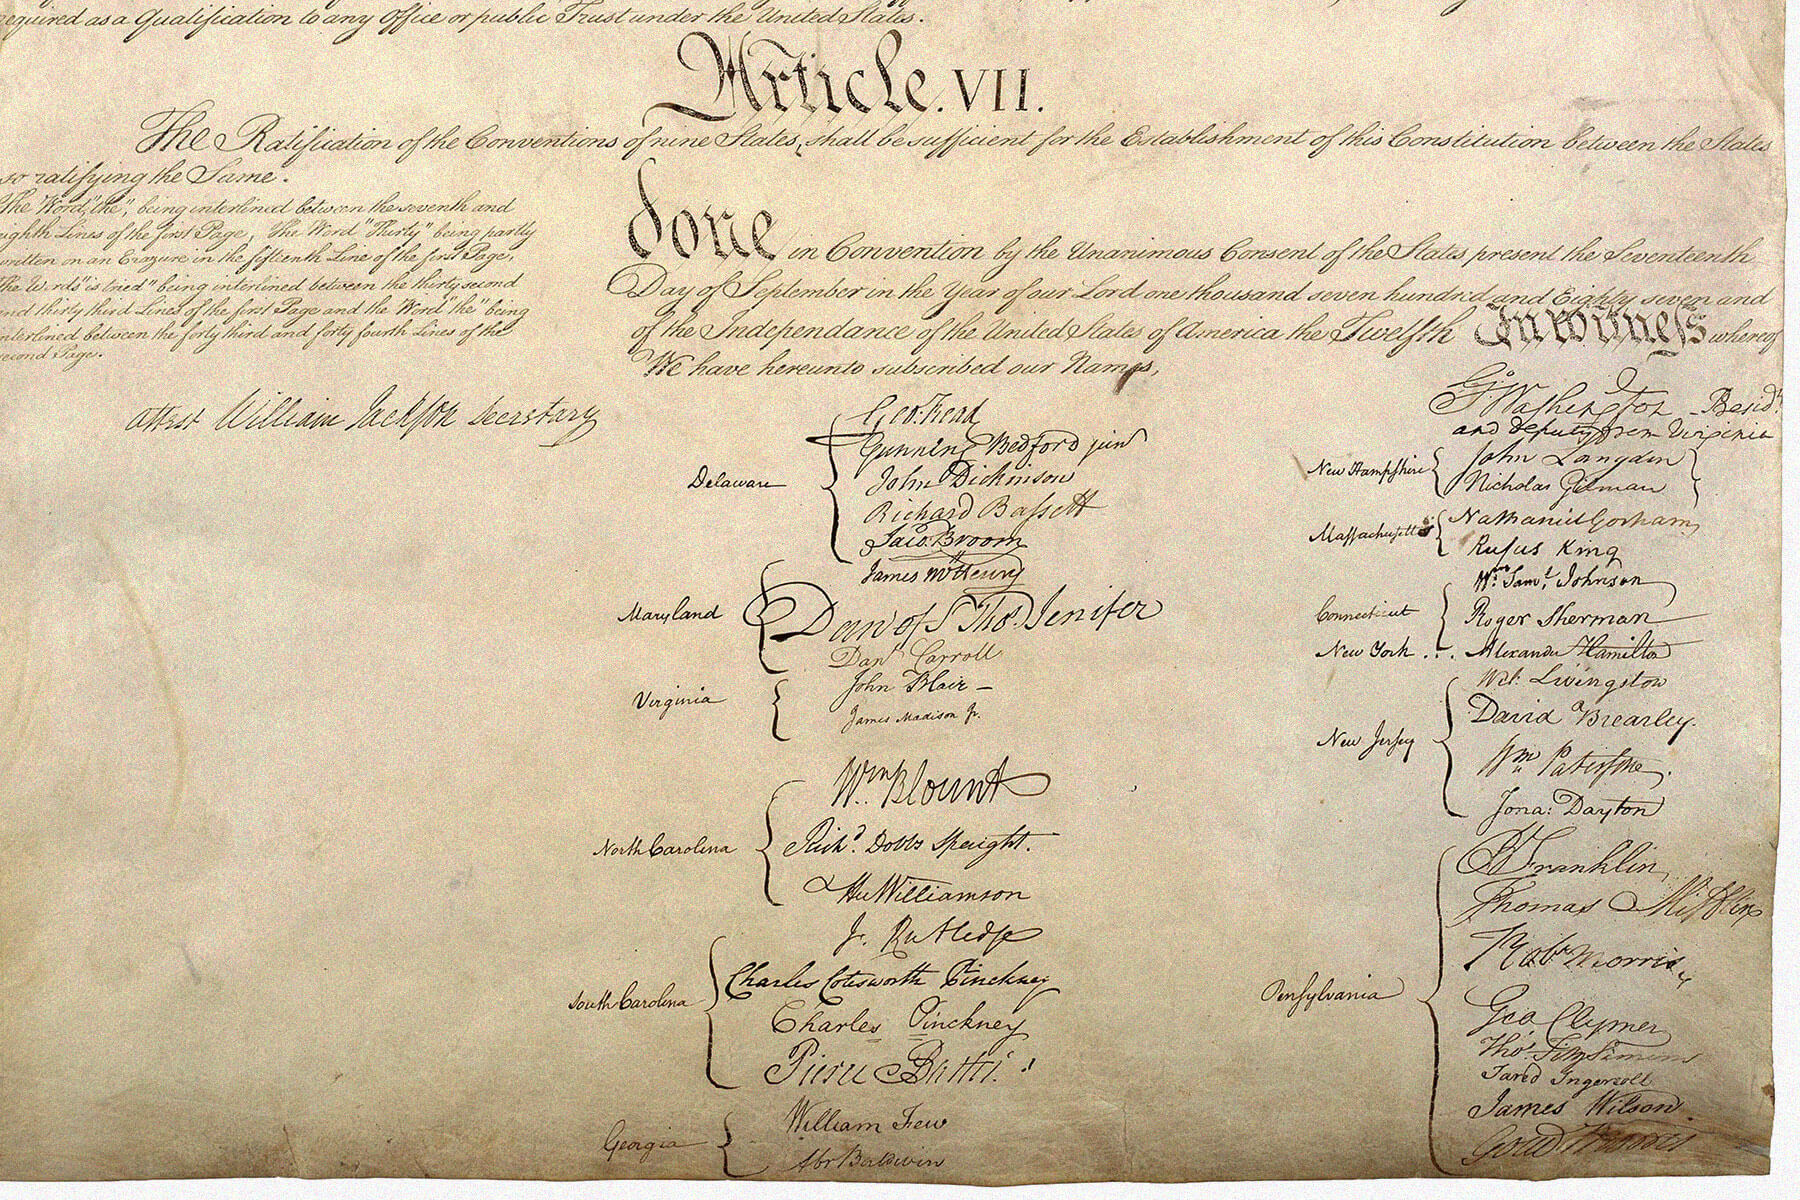 required as a Qualification to any Office or public Trust under the United States.
Article. VII.
The Ratification of the Conventions of nine States, shall be sufficient for the Establishment of this Constitution between the States
so ratifying the Same.
the Word, "the", being interlined between the seventh and
eighth Lines of the first Page, the Word "Thirty" being partly
written on an Erazure in the fifteenth Line of the first Page,
the Words "is tried" being interlined between the thirty second
and thirty third Lines of the first Page and the Word "the" being
interlined between the forty third and forty fourth Lines of the
second Page.
Attest William Jackson Secretary
done in Convention by the Unanimous Consent of the States present the Seventeenth
Day of September in the Year of our Lord one thousand seven hundred and Eighty seven and
of the Independance of the United States of America the Twelfth In witness whereof
We have hereunto subscribed our Names,
Delaware
Geo: Read
Gunning Bedford jun
John Dickinson
Richard Bassett
Jaco: Broom
Maryland
James McHenry
Dan of St Thos. Jenifer
Danl Carroll
Virginia
John Blair –
James Madison Jr.
North Carolina
Wm. Blount
Richd. Dobbs Spaight.
Hu Williamson
South Carolina
J. Rutledge
Charles Cotesworth Pinckney
Charles Pinckney
Pierce Butler.
Georgia
William Few
Abr Baldwin
Go. Washington – Presidt.
and deputy from Virginia
New Hampshire
John Langdon
Nicholas Gilman
Massachusetts
Nathaniel Gorham
Rufus King
Connecticut
Wm. Saml. Johnson
Roger Sherman
New York . . . Alexander Hamilton
New Jersey
Wil: Livingston
David Brearley.
Wm Paterson.
Jona: Dayton
Pensylvania
B Franklin
Thomas Mifflin
Robt Morris
Geo. Clymer
Thos. FitzSimons
Jared Ingersoll
James Wilson
Gouv Morris